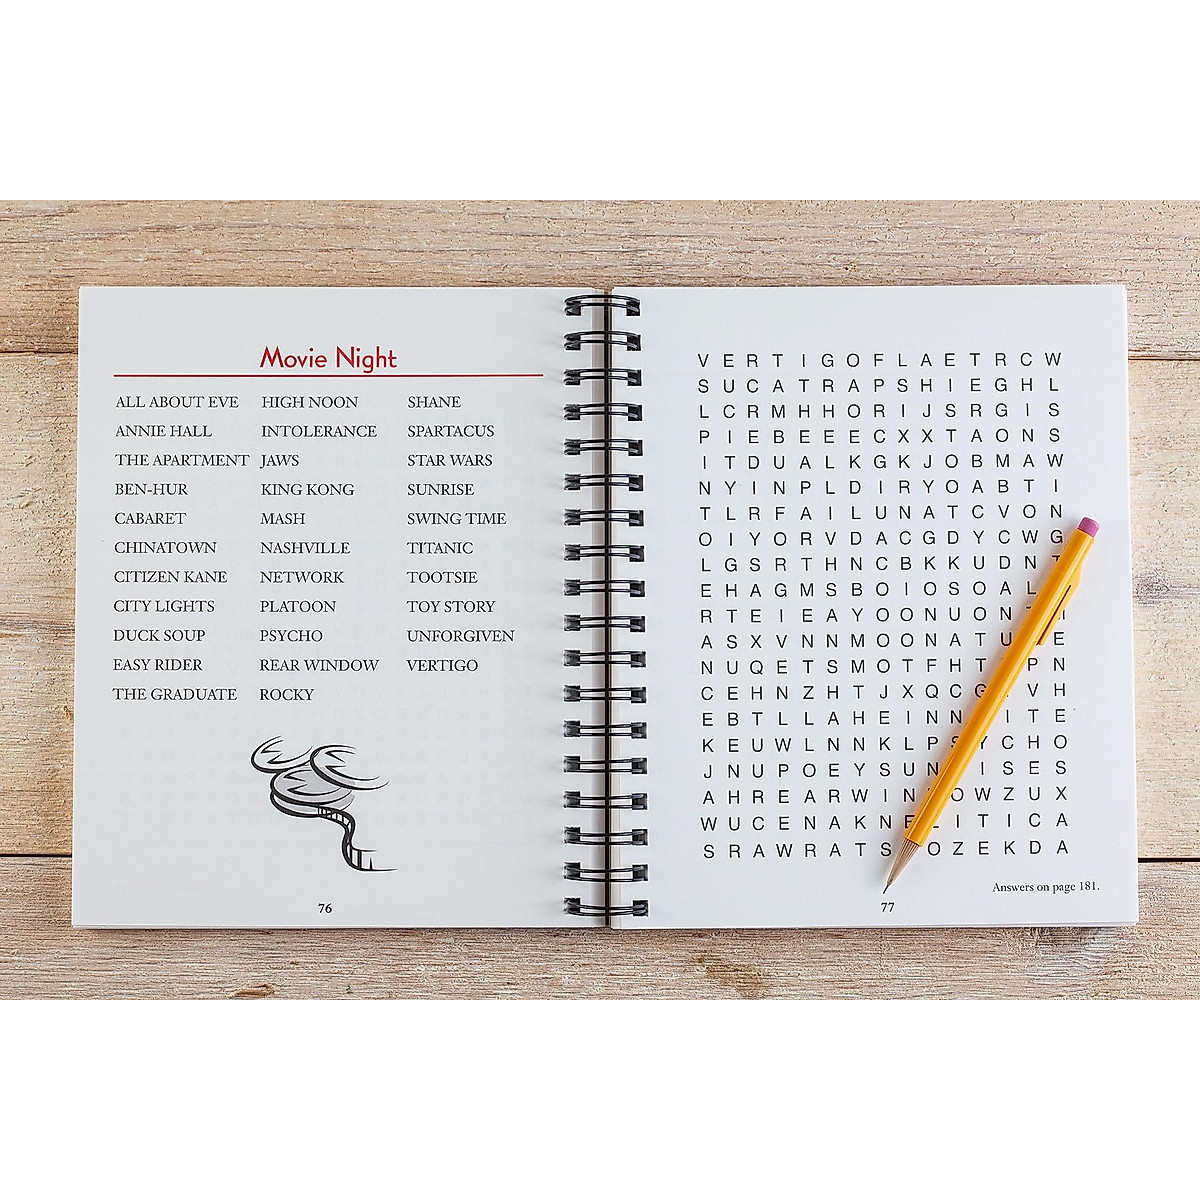 Movie Night
ALL ABOUT EVE HIGH NOON SHANE
ANNIE HALL INTOLERANCE SPARTACUS
THE APARTMENT JAWS STAR WARS
BEN-HUR KING KONG SUNRISE
CABARET MASH SWING TIME
CHINATOWN NASHVILLE TITANIC
CITIZEN KANE NETWORK TOOTSIE
CITY LIGHTS PLATOON TOY STORY
DUCK SOUP PSYCHO UNFORGIVEN
EASY RIDER REAR WINDOW VERTIGO
THE GRADUATE ROCKY
76
V E R T I G O F L A E T R C W
S U C A T R A P S H I E G H L
L C R M H H O R I J S R G I S
P I E B E E E C X X T A O N S
I T D U A L K G K J O B M A W
N Y I N P L D I R Y O A B T I
T L R F A I L U N A T C V O N
O I Y O R V D A C G D Y C W G
L G S R T H N C B K K U D N T
E H A G M S B O I O S O A L
R T E I E A Y O O N U O N
A S X V N N M O O N A T U E
N U Q E T S M O T F H T P N
C E H N Z H T J X Q C G V H
E B T L L A H E I N N I T E
K E U W L N N K L P S Y C H O
J N U P O E Y S U N I S E S
A H R E A R W I N O W Z U X
W U C E N A K N E L I T I C A
S R A W R A T S O Z E K D A
Answers on page 181.
77